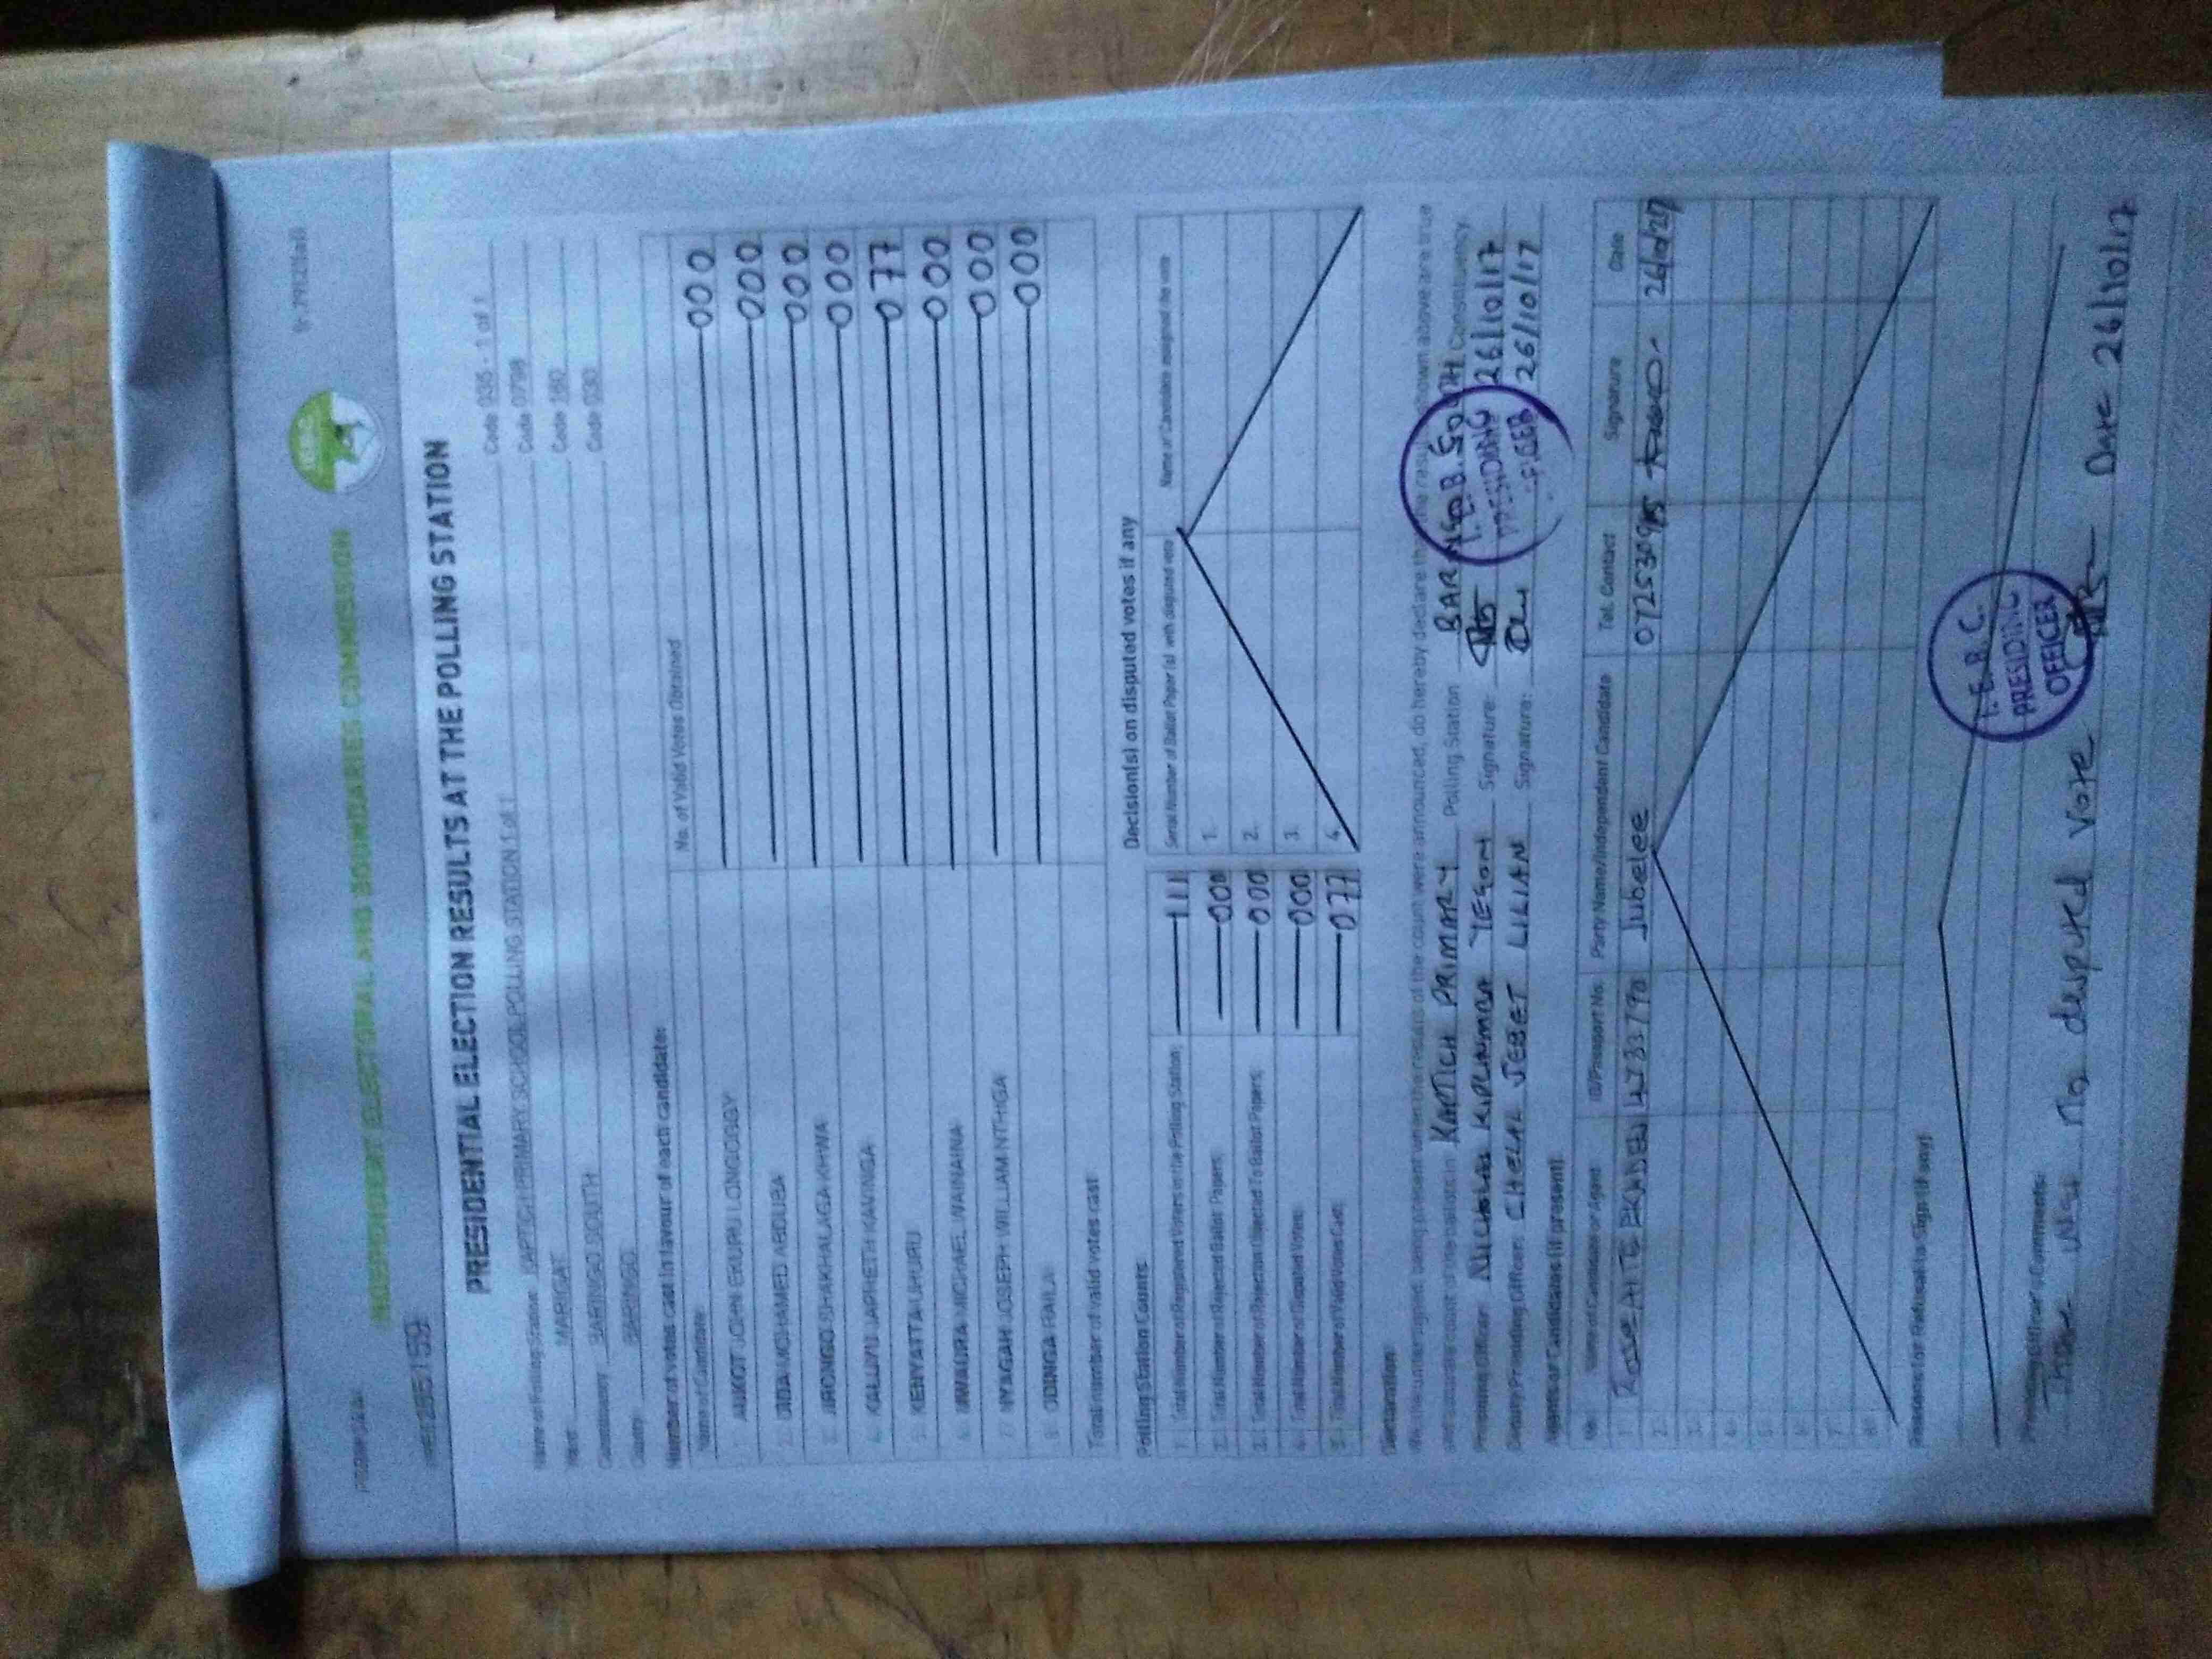 FORM 34A
INDEPENDENT ELECTORAL AND BOUNDARIES COMMISSION
PRESIDENTIAL ELECTION RESULTS AT THE POLLING STATION
Name of Polling Station PRIMARY SCHOOL POLLING STATION 1 of 1 Code 035 - 1 of 1
Ward MARIGAT Code 0798
Constituency BARINGO SOUTH Code 160
County BARINGO Code 030
Number of votes cast in favour of each candidate:
Name of Candidate No. of Valid Votes Obtained
1. AUKOT JOHN EKURU LONGOGGY 000
2. DIDA MOHAMED ABDUBA 000
3. JIRONGO SHAKHALAGA KHWA 000
4. KALUYU JAPHETH KAVINGA 000
5. KENYATTA UHURU 077
6. MWAURA MICHAEL WAINAINA 000
7. NYAGAH JOSEPH WILLIAM NTHIGA 000
8. ODINGA RAILA 000
Total number of valid votes cast
Polling Station Counts
1. Total Number of Registered Voters in the Polling Station: 111
2. Total Number of Rejected Ballot Papers:
3. Total Number of Rejection Objected To Ballot Papers: 000
4. Total Number of Disputed Votes: 000
5. Total Number of Valid Votes Cast: 077
Decision(s) on disputed votes if any
Serial Number of Ballot Paper (s) with disputed vote Name of Candidate assigned the vote
1.
2.
3.
4.
Declaration
We, the undersigned, being present when the results of the count were announced, do hereby declare that the results shown above are true
and accurate count of the ballots in KAPTICH PRIMARY Polling Station BARINGO SOUTH Constituency
Presiding Officer NICHOLAS YEGON Signature: 26/10/17
Deputy Presiding Officer: CHELAL JEBET LILIAN Signature: 26/10/17
I.E.B.C.
PRESIDING
OFFICER
Agents or Candidates (if present)
No. Name of Candidate or Agent ID/Passport No. Party Name/Independent Candidate Tel. Contact Signature Date
1. Jubelee
2.
3.
4.
5.
6.
7.
8.
Reasons for Refusal to Sign (if any)
I.E.B.C.
PRESIDING
OFFICER
Presiding Officer's Comments:
There was no desputed vote Date 26/10/17